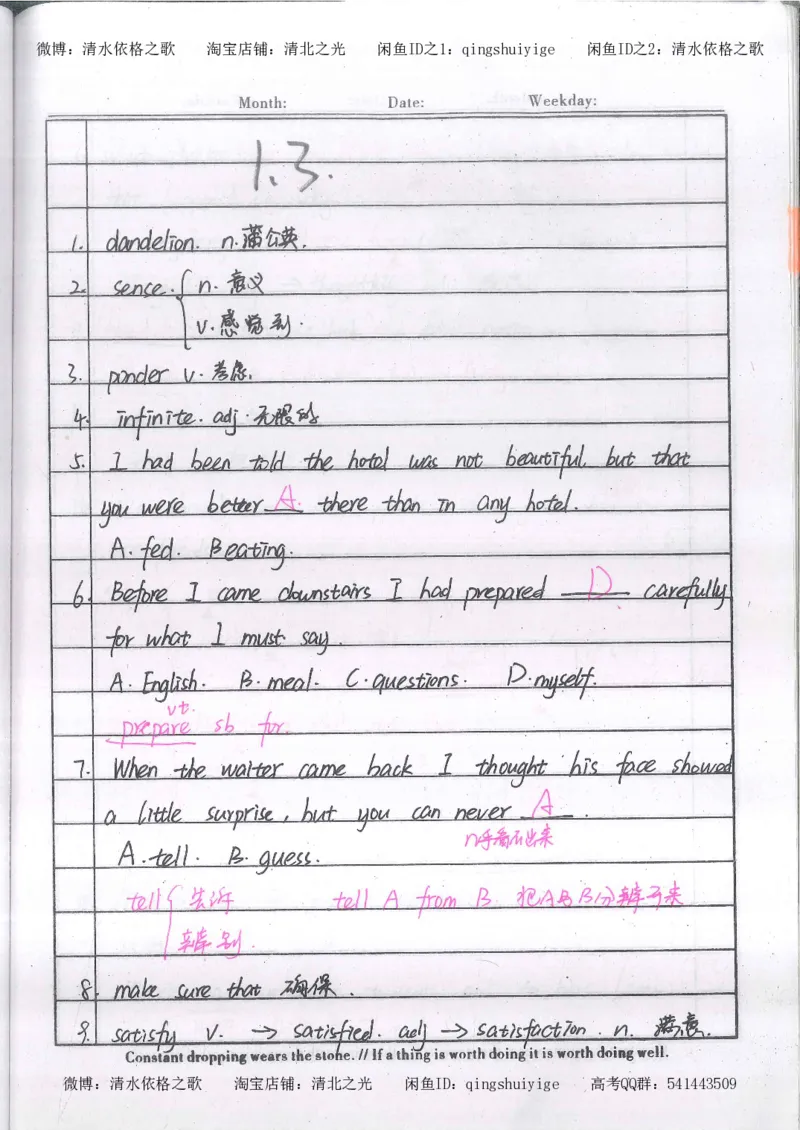 微博：清水依格之歌 淘宝店铺：清北之光 闲鱼ID之1：qingshuiyige 闲鱼ID之2：清水依格之歌
Month: Date: Weekday:
1.3.
1. dandelion. n.蒲公英.
2. sense. { n. 意义
v. 感觉到.
3. ponder v. 考虑.
4. infinite. adj. 无限的
5. I had been told the hotel was not beautiful but that
you were better A. there than in any hotel.
A. fed. B eating.
6. Before I came downstairs I had prepared D. carefully
for what I must say.
A. English. B. meal. C. questions. D. myself.
vt.
prepare sb for.
7. When the waiter came back I thought his face showed
a little surprise, but you can never A.
看不出来
A. tell. B. guess.
tell { 告诉 tell A from B 把A与B分辨开来
辨别.
8. make sure that 确保.
9. satisfy v. → satisfied. adj → satisfaction. n. 满意.
Constant dropping wears the stone. // If a thing is worth doing it is worth doing well.
微博：清水依格之歌 淘宝店铺：清北之光 闲鱼ID：qingshuiyige 高考QQ群：541443509